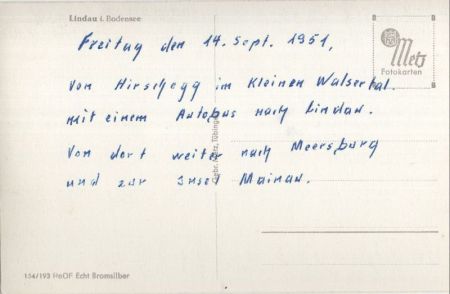 Lindau i. Bodensee
Freitag den 14. Sept. 1951,
Metz
Fotokarten
von Hirschegg im Kleinen Walsertal.
mit einem Autobus nach Lindau.
Von dort weiter nach Meersburg
und zur Insel Mainau.
Gebr. Metz, Tübingen
154/193 HnOF Echt Bromsilber